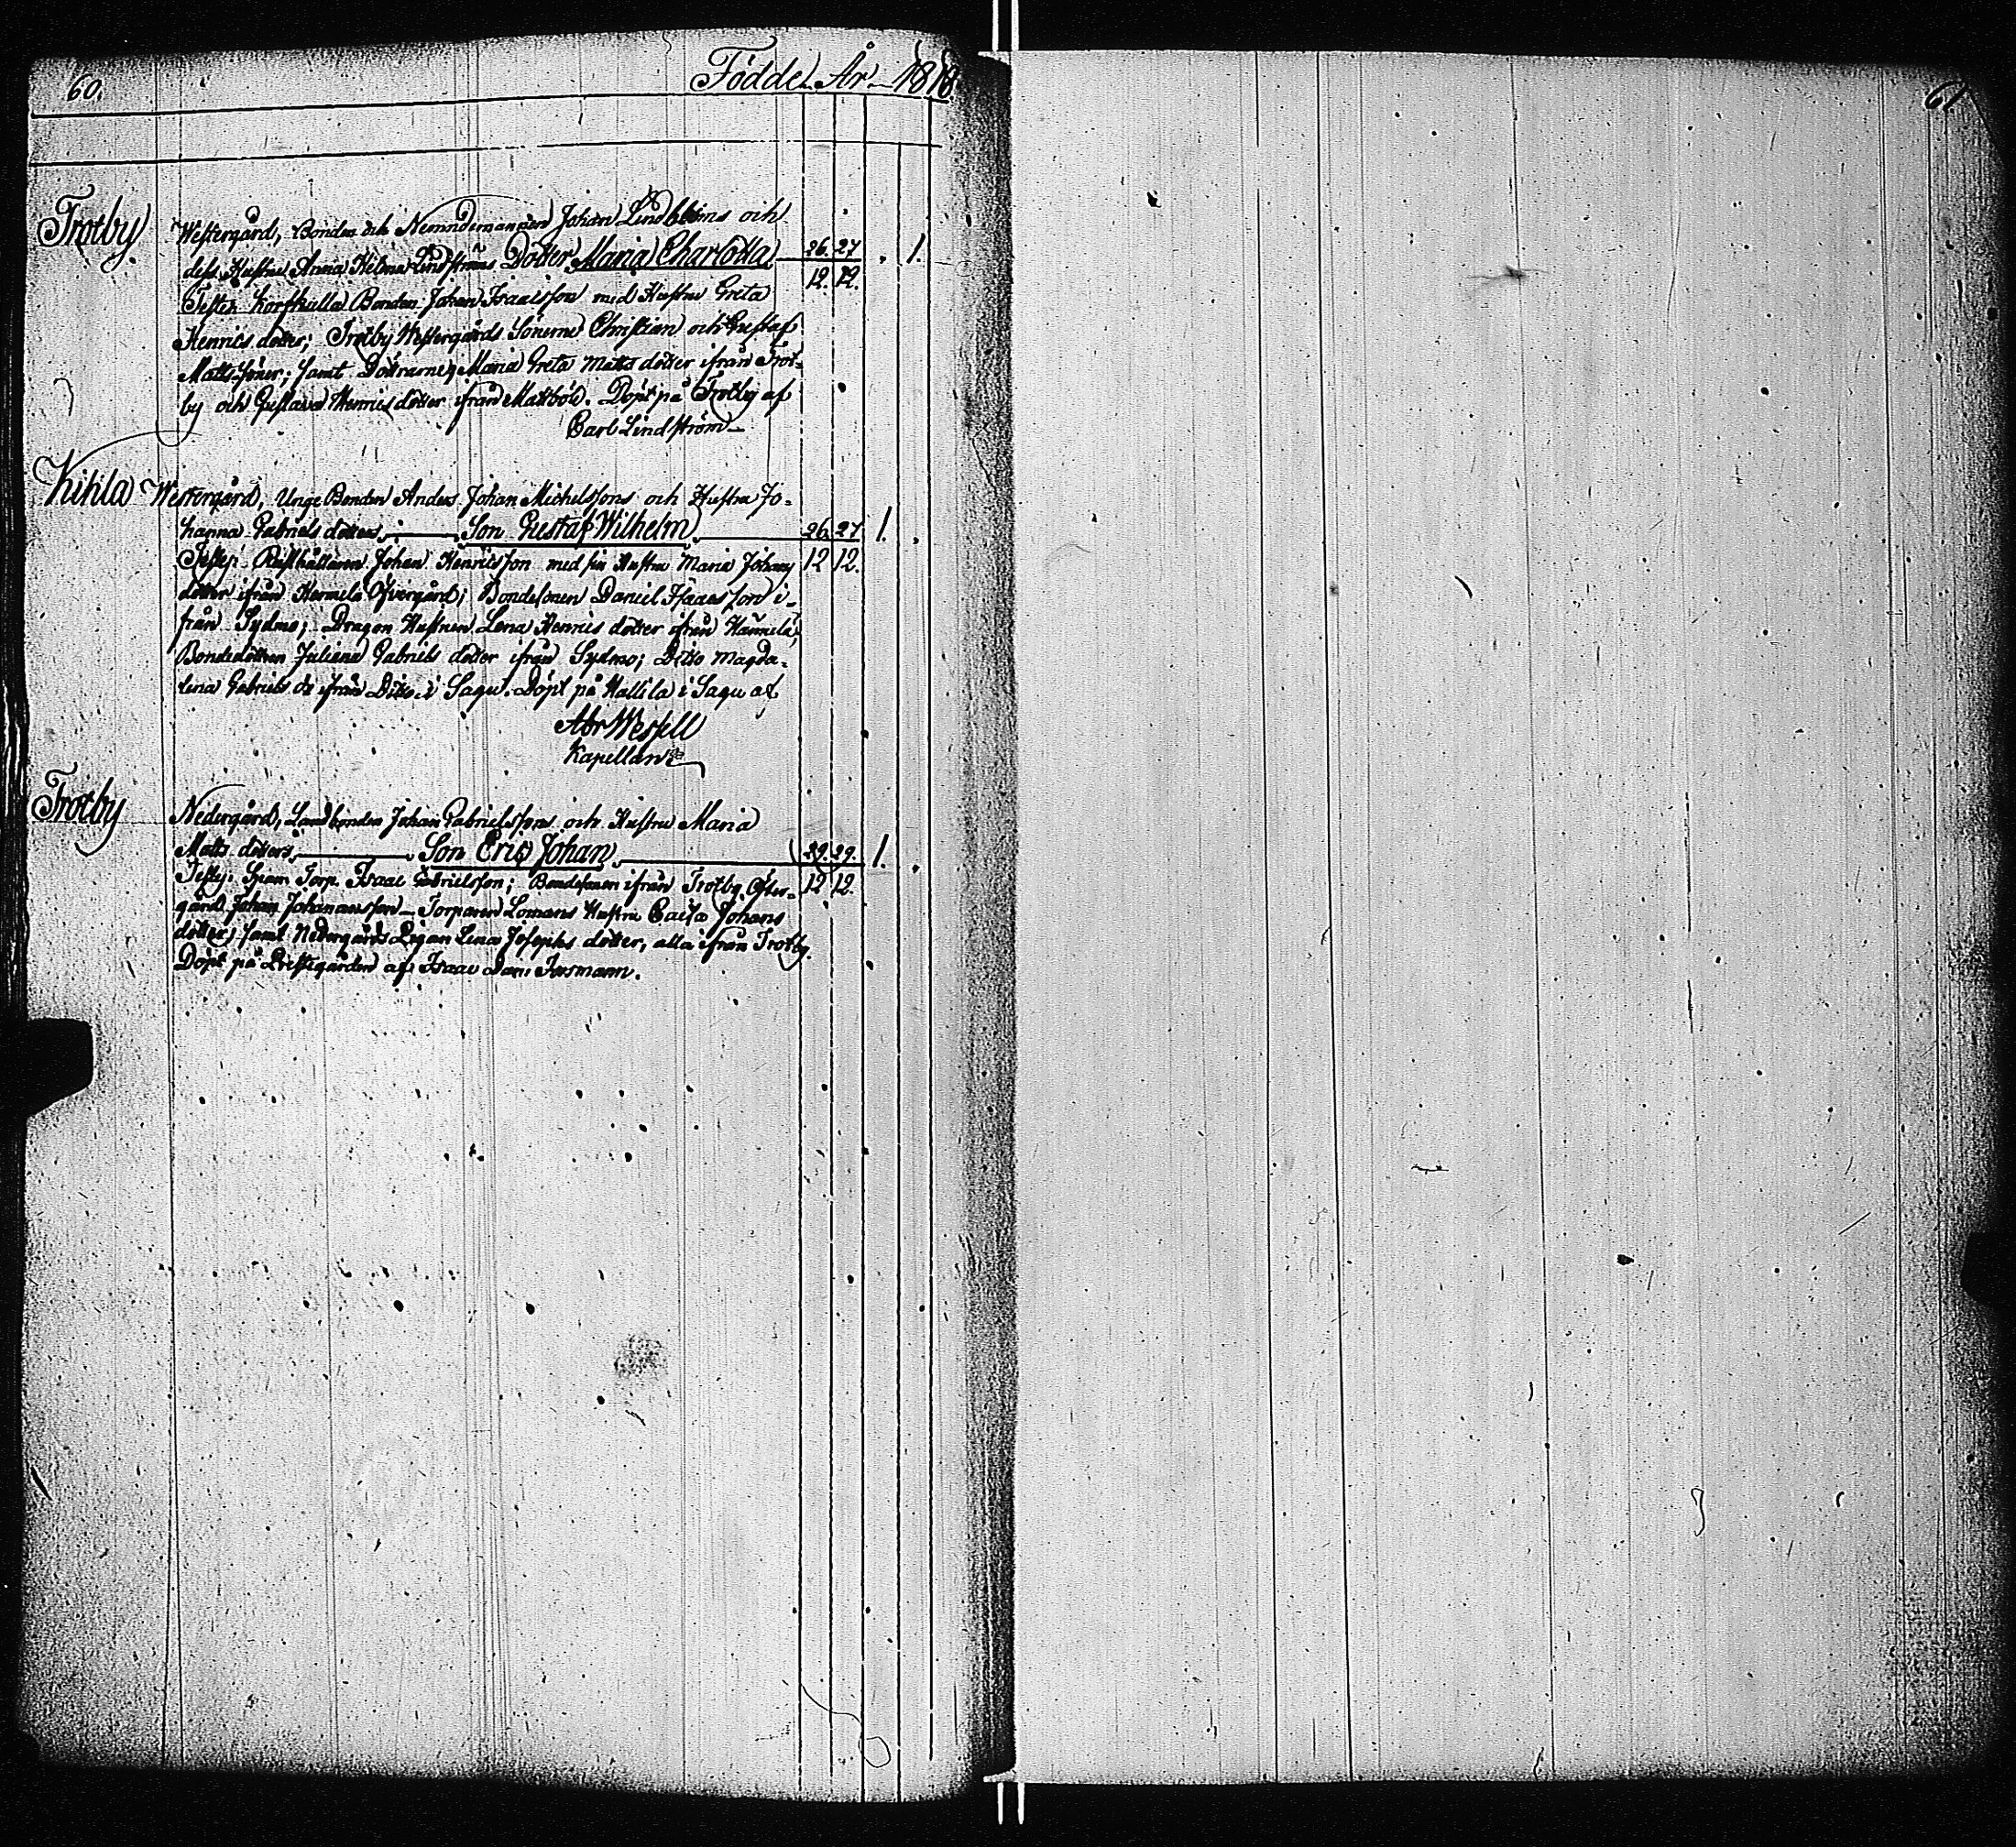 60.
Födde År 1818
61
Trotby
Westergård, Bonden och Nemndemannen Johan Lindbloms och
dess Hustru Anna Helena Lindströms Dotter Maria Charlotta 26. 27 . 1.
12. 12.
Testes Korfkulla Bonden Johan Isaacsson med Hustru Greta
Henrics dotter; Trotby Westergårds Sönerne Christian och Gustaf
Matts-söner; samt Döttrarne Maria Greta Matts dotter ifrån Trot-
by och Gustava Henrics dotter ifrån Mattböle. Döpt på Trotby af
Carl Lindström
Kihila Westergård, Unge Bonden Anders Johan Michelssons och Hustru Jo-
hanna Gabriels dotters Son Gustaf Wilhelm 26. 27 1. .
12 12.
Testes: Rusthållaren Johan Henricsson med sin Hustru Maria Johans
dotter ifrån Öfvergård; Bondesonen Daniel Isaacsson i-
från Sydmo; Dragon Hustrun Lena Henrics dotter ifrån
Bondedottren Juliana Gabriels dotter ifrån Sydmo; Ditto Magda-
lena Gabriels dr ifrån Ditto i Sagu. Döpt på Hallila i Sagu af
Abr Wesell
Kapellan
Trotby
Nedergård, Landbonden Johan Gabrielssons och Hustru Maria
Matts dotters Son Eric Johan 29. 29. 1. .
12 12.
Testes: Torp. Isaac Gabrielsson; Bondesonen ifrån Trotby Öfver-
gård Johan Johansson Torparen Lomans Hustru Caisa Johans
dotter, samt Nedergårds Pigan Lena Josephs dotter, alla ifrån Trotby.
Döpt på Prestegården af Isaac Dan.